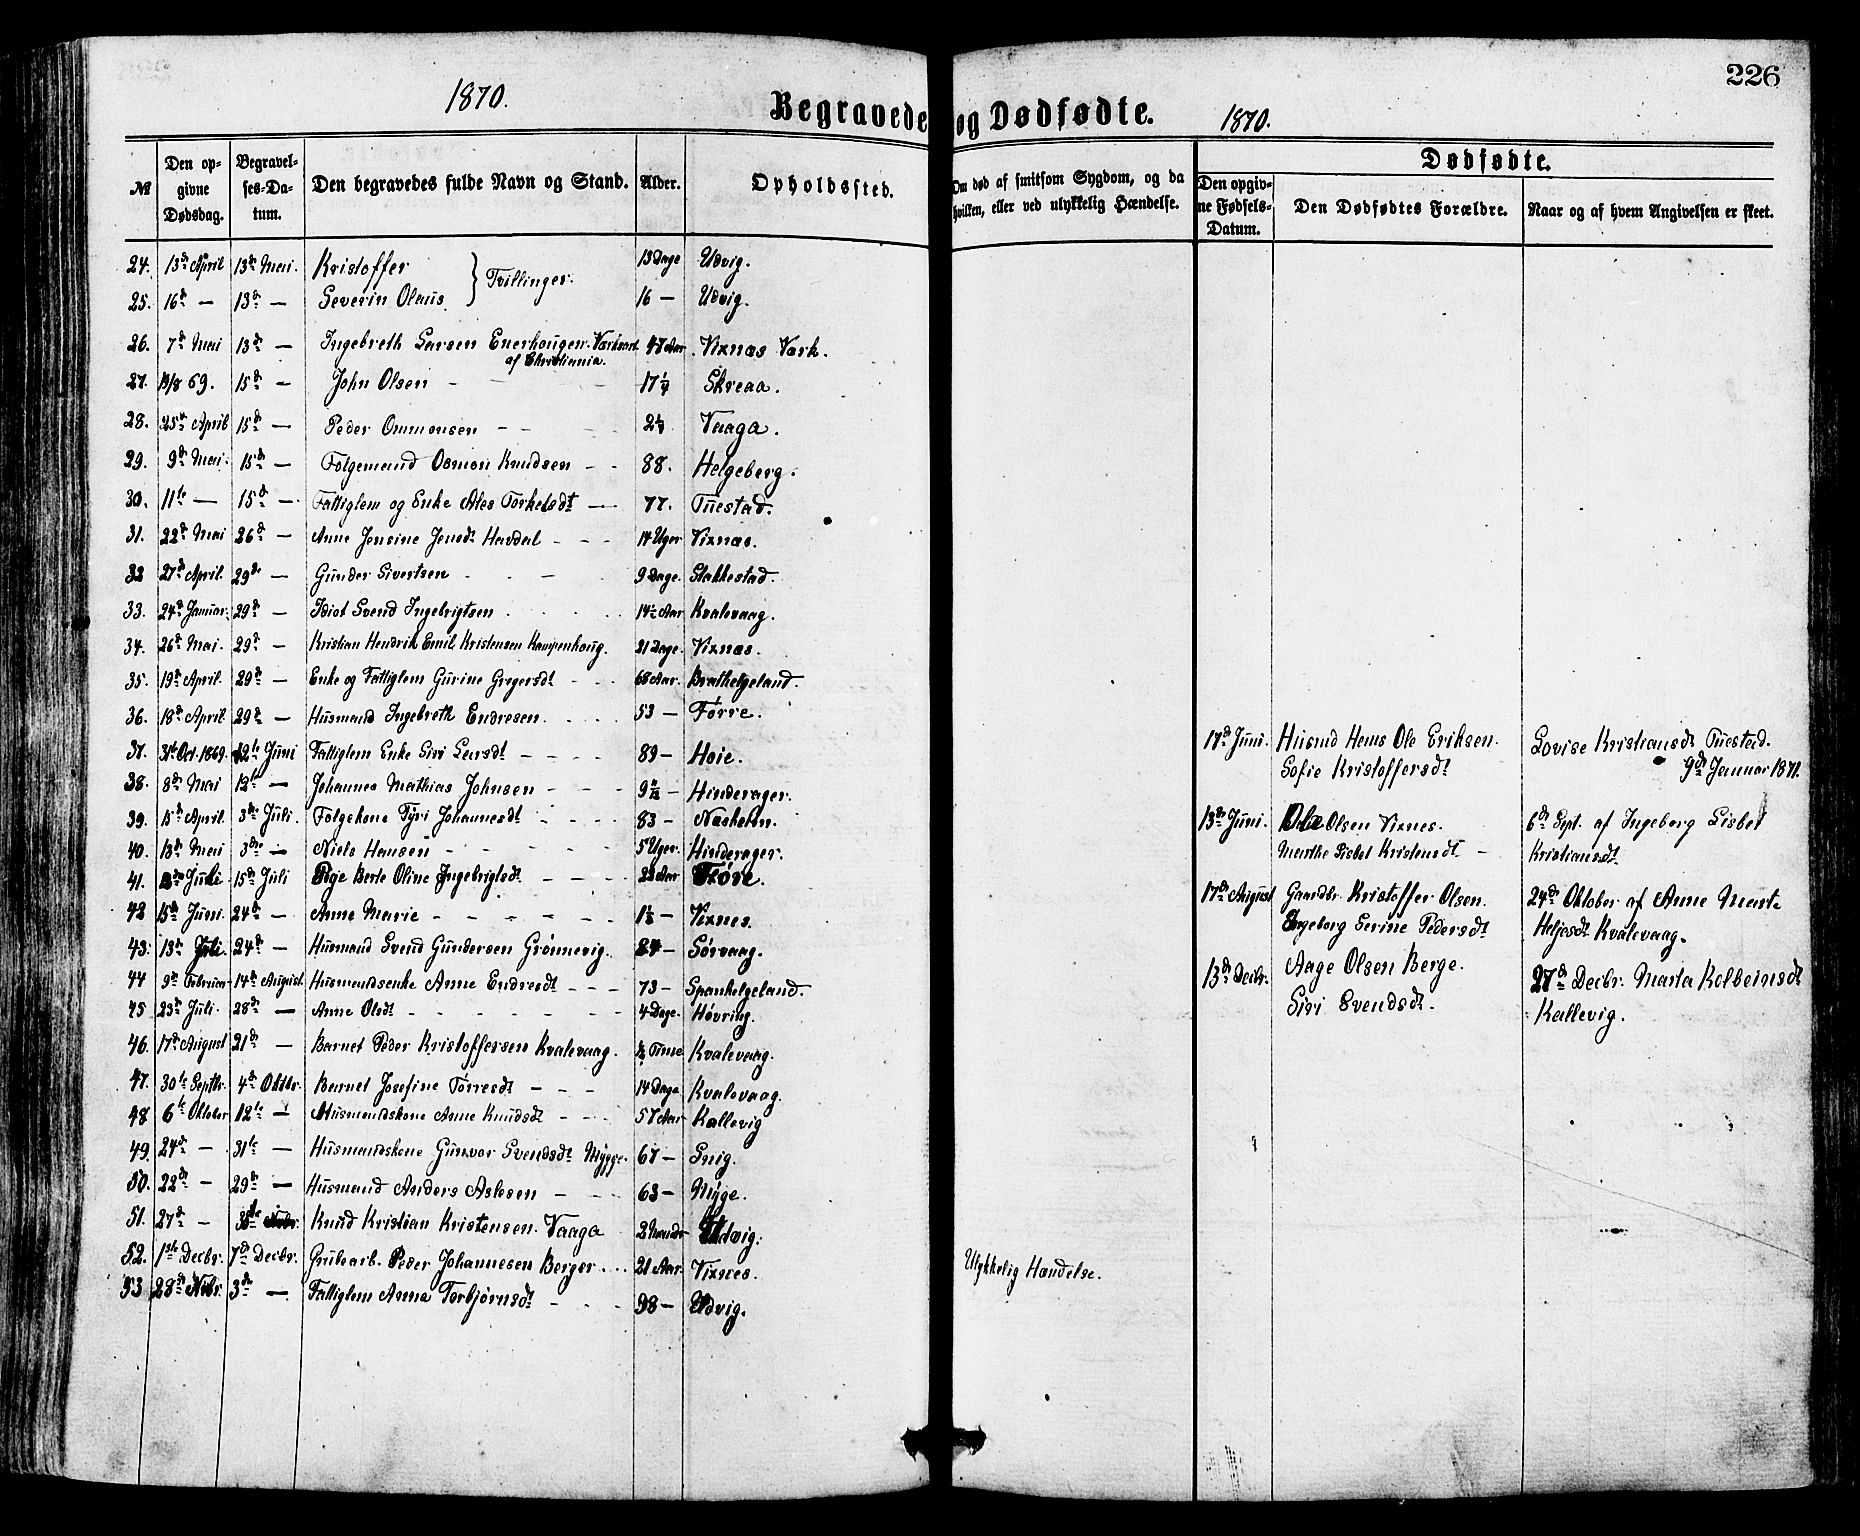 226
1870.
Begravede og Dødfødte.
1870.
Dødfødte.
№ Den opgivne Dødsdag. Begravelses-Datum. Den begravedes fulde Navn og Stand. Alder. Opholdssted. Om død af smitsom Sygdom, og da hvilken, eller ved ulykkelig Hændelse. Den opgivne Fødsels-Datum. Den Dødfødtes Forældre. Naar og af hvem Angivelsen er skeet.
24. 13de April 13de Mai. Kristoffer } Tvillinger. 13 Dage Udvig.
25. 16de — 13de — Severin Olaus. 16 — Udvig.
26. 7de Mai 13de — Ingebreth Larsen Enerhougen. 47 Aar. Vixnæs Værk.
af Christiania.
27. 69. 15de — John Olsen - - - 17 Skreaa.
28. 25de April 15de — Peder Ommonsen - - - Vaaga.
29. 9de Mai. 15de — Følgemand Osmon Knudsen - - 88. Helgeberg.
30. 11te — 15de — Fattiglem og Enke Ales Torkelsdt — 77. Tuestad.
31. 22de Mai 26de — Anne Jensine Jensdt Havdal - - - 14 Uger Vixnæs.
32 27de April. 29de — Gunder Sivertsen - - - 9 Dage. Stakkestad.
33. 24de Januar. 29de — Idiot Svend Ingebrigtsen 14½ Aar Kvalevaag.
34. 26de Mai. 29de — Kristian Hendrik Emil Kristensen Kampenhoug. 21 Dage. Vixnæs.
35. 19de April. 29de — Enke og Fattiglem Gurine Gregersdt - - 68 Aar. Brathelgeland.
36. 18de April 29de — Husmand Ingebreth Endresen. - - - 53 — Førre.
37. 31te Oct. 1869. 12te Juni Fattiglem Enke Siri Larsdt - - - - 89 — Høie.
38. 8de Mai 12te — Johannes Mathias Johnsen - - - 9 — Hinderager.
39. 15de April. 3die Juli. Følgekone Tyri Johannesdt - - - 83 — Næsheim.
40. 13de Mai 3die — Niels Hansen - - - - - 5 Uger. Hinderager.
41. 15de Juli Pige Berte Oline Ingebrigtsdt - - - 22 Aar
42 15de Juni. 24de — Anne Marie - - - - - 1½ — Vixnes.
43. 13de Juli. 24de — Husmand Svend Gundersen Grønnevig. 84 — Sørvaag.
44 9de Februar 14de August. Husmandsenke Anne Endresdt - - - 73 — Spanhelgeland.
45 23de Juli. 28de — Anne Olsdt - - - - - - 4 Dage. Høvring.
46. 17de August 21de — Barnet Peder Kristoffersen Kvalevaag. ½ Time Kvalevaag.
47. 30te Septbr. 4de Oktbr. Barnet Josefine Tørresdt - - - 14 Dage Kvalevaag.
48 6te Oktober 12te — Husmandskone Anne Knudsdt - - - 57 Aar Kallevig
49. 24de — 31te — Husmandskone Gunvor Svendsdt Mygge. 67 — Snig.
50. 22de — 29de — Husmand Anders Aslesen - - - 63 — Myge.
51. 27de — Knud Kristian Kristensen. Vaaga 2 Maander Udvig.
52. 1ste Decbr. 7de Decbr. Grubearb. Peder Johannesen Berger... 21 Aar. Vixnes. Ulykkelig Hændelse.
53 28de Nvbr. 3de — Fattiglem Anna Torbjørnsdt - - - 98 — Udvig.
17de Juni. Husmd Hans Ole Eriksen. Lovise Kristiansdt Tuestad.
Sofie Kristoffersdt 9de Januar 1871.
13de Juni. Ole Olsen Vixnes. 6te Sept. af Ingeborg Lisbet
Marthe Lisbet Kristensdt - Kristiansdt
17de August Gaardbr. Kristoffer Olsen. 24de Oktober af Anne Marta
Ingeborg Serine Pedersdt Heljesdt Kvalevaag.
13de Decbr. Aage Olsen Berge. 27de Decbr. Marta Kolbeinsdt
Siri Svendsdt - Kallevig.